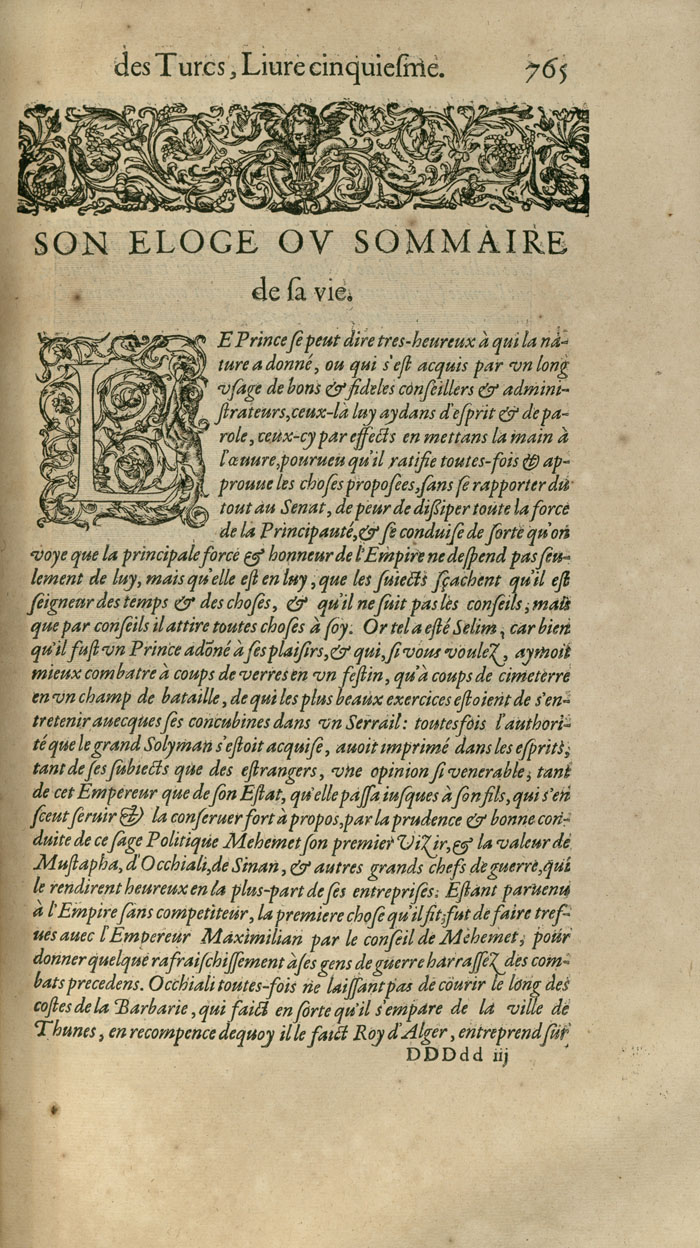 des Turcs, Liure cinquieſme. 765
SON ELOGE OV SOMMAIRE
de ſa vie.
LE Prince ſe peut dire tres-heureux à qui la na-
ture a donné, ou qui s'eſt acquis par vn long
vſage de bons & fideles conſeillers & admini-
ſtrateurs, ceux-là luy aydans d'eſprit & de pa-
role, ceux-cy par effects en mettans la main à
l'œuure, pourueu qu'il ratifie toutes-fois & ap-
prouue les choſes propoſées, ſans ſe rapporter du
tout au Senat, de peur de diſſiper toute la force
de la Principauté, & ſe conduiſe de ſorte qu'on
voye que la principale force & honneur de l'Empire ne deſpend pas ſeu-
lement de luy, mais qu'elle eſt en luy, que les ſuiects ſçachent qu'il eſt
ſeigneur des temps & des choſes, & qu'il ne ſuit pas les conſeils, mais
que par conſeils il attire toutes choſes à ſoy. Or tel a eſté Selim, car bien
qu'il fuſt vn Prince adõné à ſes plaiſirs, & qui, ſi vous voulez, aymoit
mieux combatre à coups de verres en vn feſtin, qu'à coups de cimeterre
en vn champ de bataille, de qui les plus beaux exercices eſtoient de s'en-
tretenir auecques ſes concubines dans vn Serrail: toutesfois l'authori-
té que le grand Solyman s'eſtoit acquiſe, auoit imprimé dans les eſprits,
tant de ſes ſubiects que des eſtrangers, vne opinion ſi venerable, tant
de cet Empereur que de ſon Eſtat, qu'elle paſſa iuſques à ſon fils, qui s'en
ſceut ſeruir & la conſeruer fort à propos, par la prudence & bonne con-
duite de ce ſage Politique Mehemet ſon premier Vizir, & la valeur de
Muſtapha, d'Occhiali, de Sinan, & autres grands chefs de guerre, qui
le rendirent heureux en la plus-part de ſes entrepriſes. Eſtant paruenu
à l'Empire ſans competiteur, la premiere choſe qu'il fit, fut de faire tref-
ues auec l'Empereur Maximilian par le conſeil de Mehemet, pour
donner quelque rafraiſchiſſement à ſes gens de guerre harraſſez des com-
bats precedens. Occhiali toutes-fois ne laiſſant pas de courir le long des
coſtes de la Barbarie, qui faict en ſorte qu'il s'empare de la ville de
Thunes, en recompence dequoy il le faict Roy d'Alger, entreprend ſur
DDDdd iij